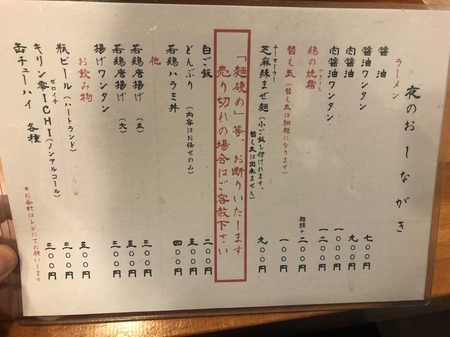 夜のおしながき
ラーメン
醤油 七〇〇円
醤油ワンタン 九〇〇円
肉醤油
肉醤油ワンタン
鶏の焼霜 麺類+
替え玉(替え玉は細麺になります) 一〇〇円
芝麻辣まぜ麺(小ご飯し付けれます。替え玉は出来ません) 九〇〇円
「麺硬め」等、お断りいたします
売り切れの場合はご容赦下さい
白ご飯 二〇〇円
どんぶり(内容はお任せのみ) 五〇〇円
若鶏ハラミ丼 四〇〇円
他
若鶏唐揚げ
若鶏唐揚げ(大)
揚げワンタン 三〇〇円
お飲み物
瓶ビール(ハートランド) 五〇〇円
キリン零ICHI(ノンアルコール) 三〇〇円
缶チューハイ 各種 三〇〇円
*お会計はレジにてお願いします